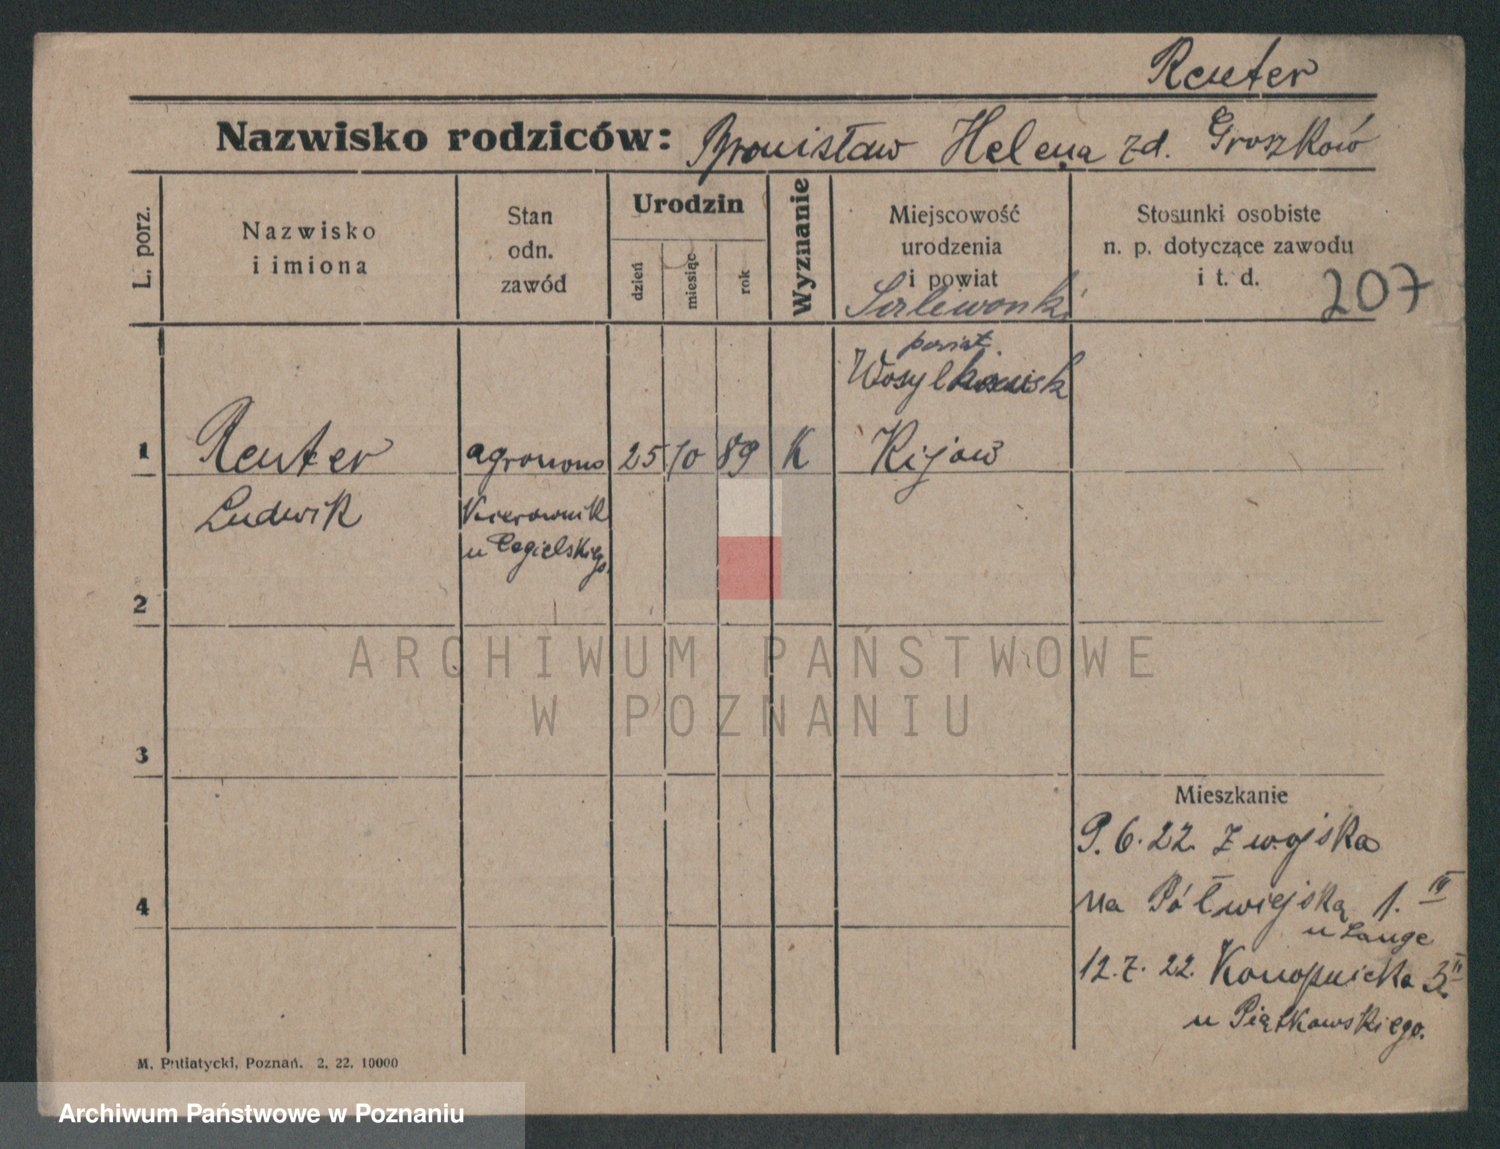 Reuter
Nazwisko rodziców: Bronisław Helena zd. Groszków
L. porz.
Nazwisko
i imiona
Stan
odn.
zawód
Urodzin
dzień
miesiąc
rok
Wyznanie
Miejscowość
urodzenia
i powiat
Stosunki osobiste
n. p. dotyczące zawodu
i t. d.
207
powiat
1
Reuter
agronom
25
10
89
K
Kijow
Ludwik
Kierownik
u Cegielskiego
2
3
4
Mieszkanie
9.6.22. z wojska
na Półwiejską 1. IV
u Lange
12.7.22. Konopnicka
u Piątkowskiego.
M. Putiatycki, Poznań. 2. 22. 10000
ARCHIWUM PAŃSTWOWE
W POZNANIU
Archiwum Państwowe w Poznaniu